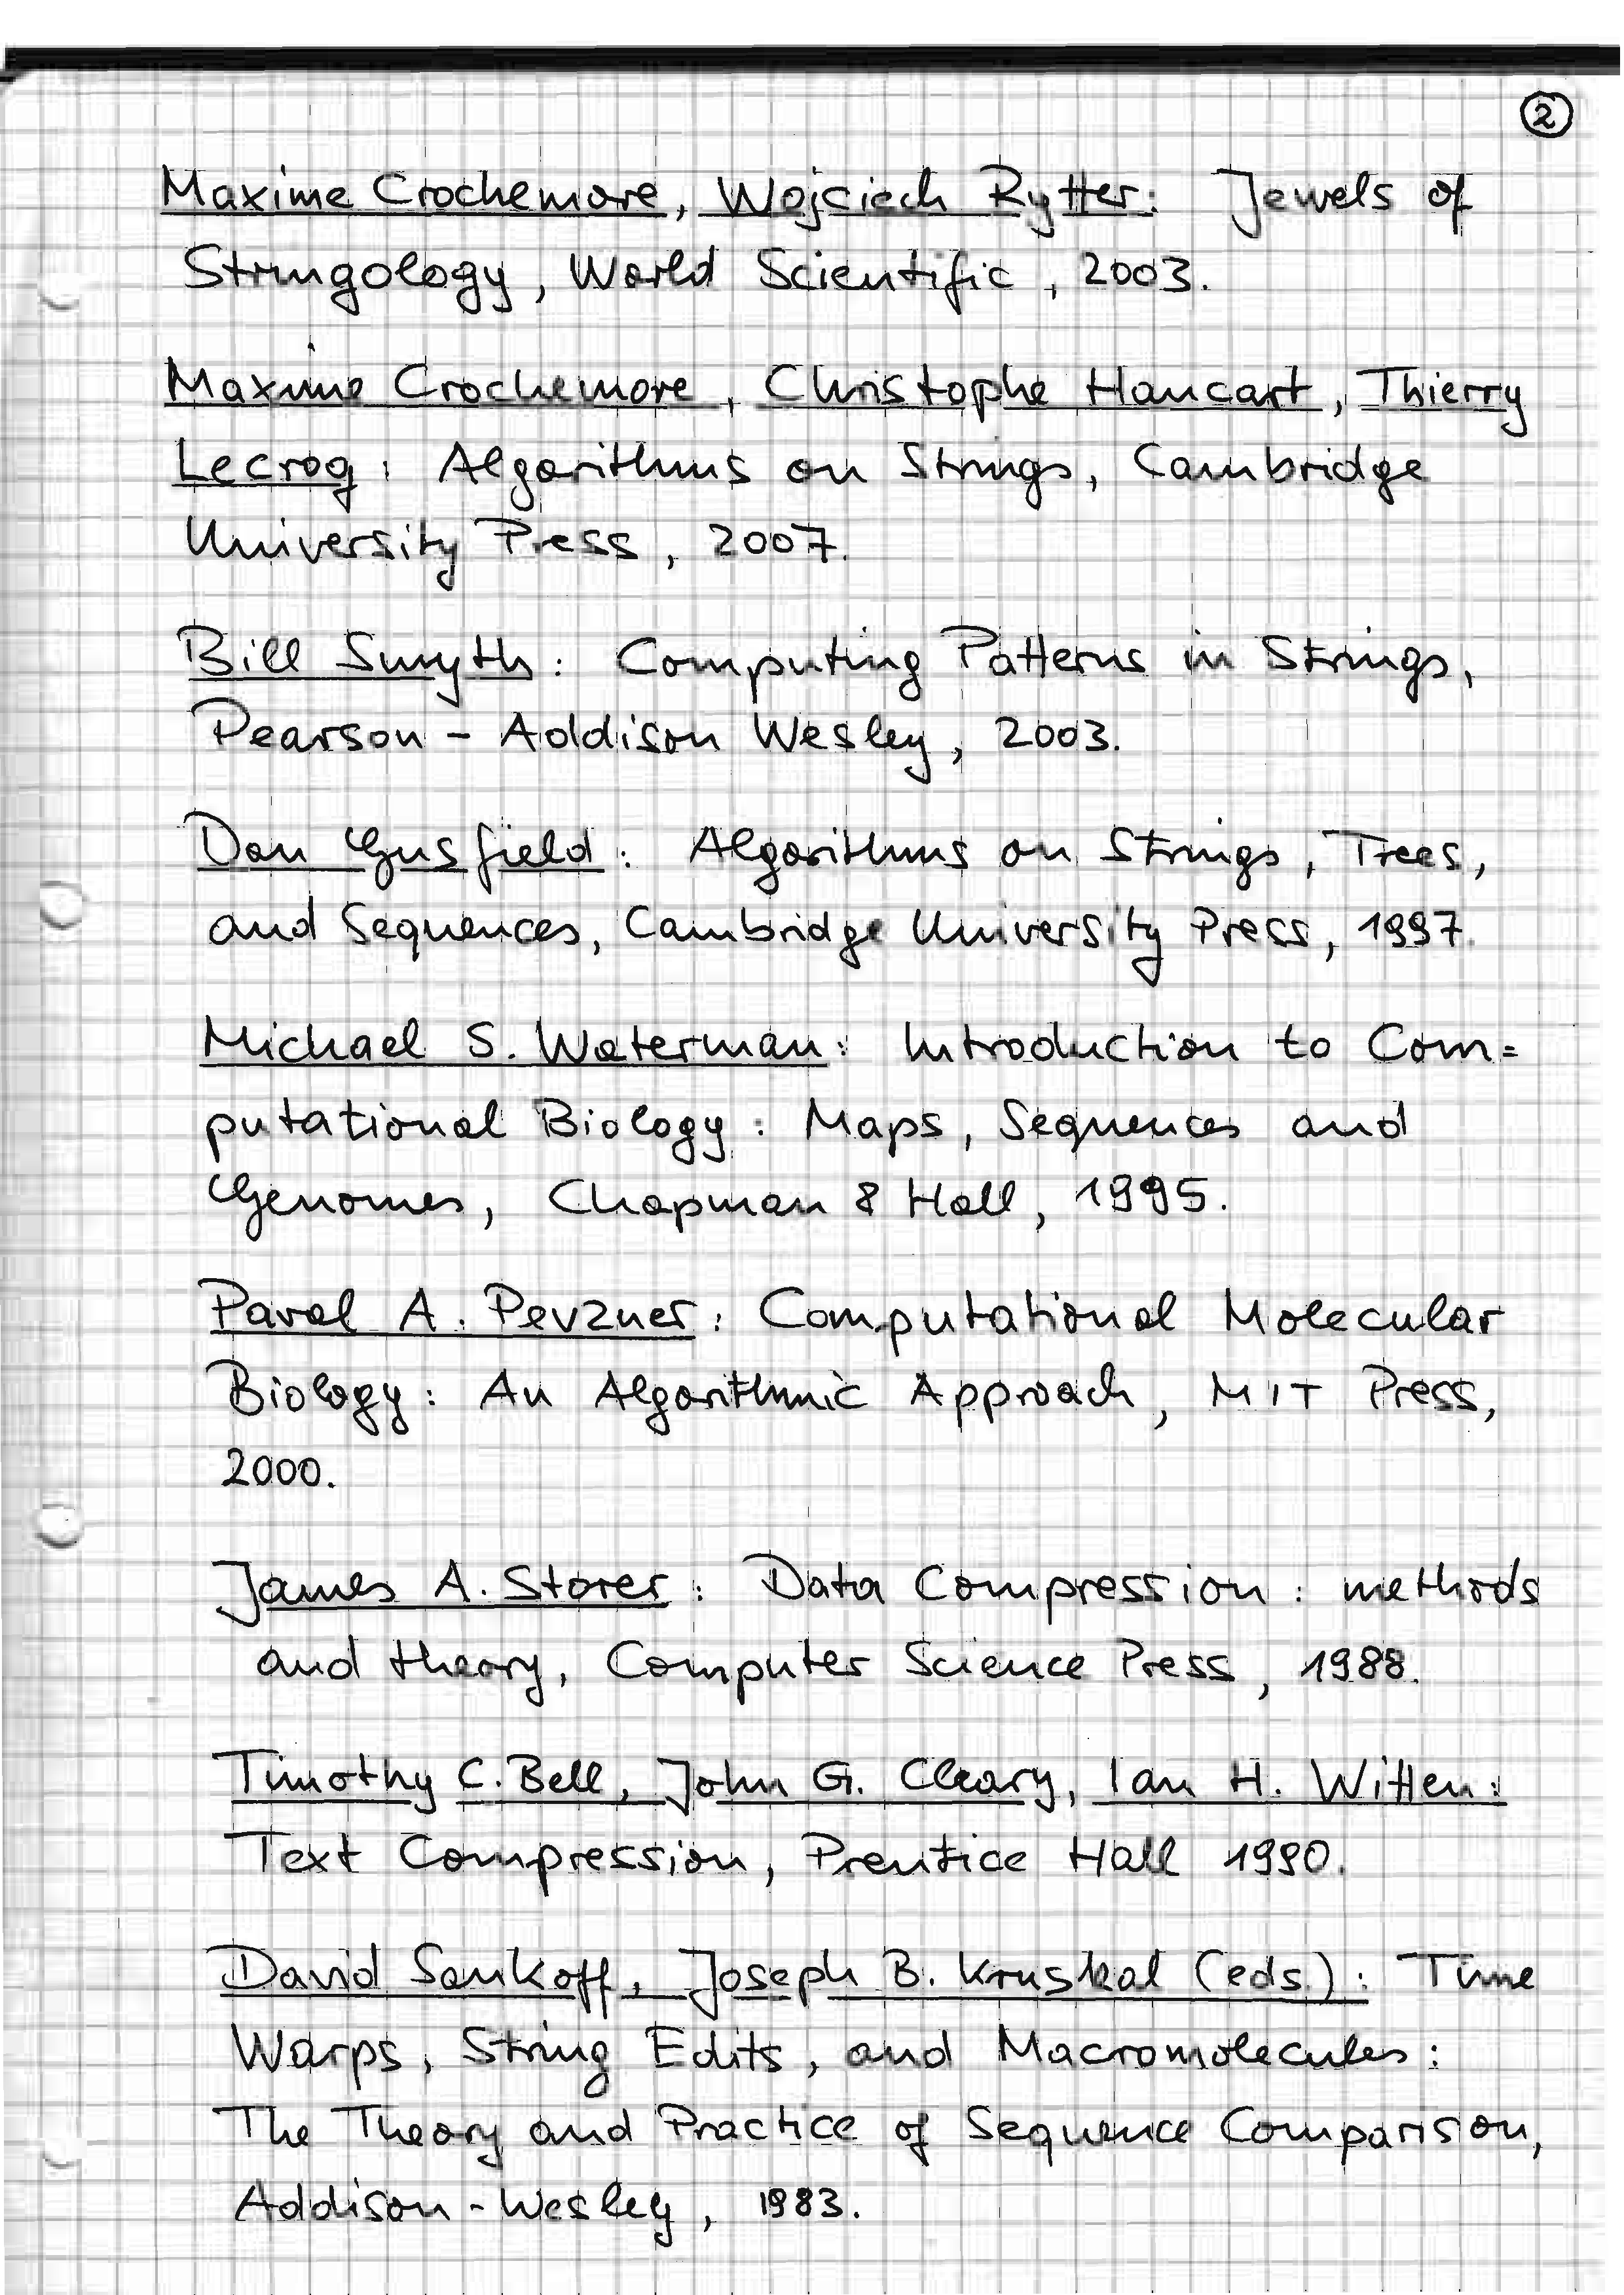 2
Maxime Crochemore, Wojciech Rytter: Jewels of
Stringology, World Scientific, 2003.
Maxime Crochemore, Christophe Hancart, Thierry
Lecroq: Algorithms on Strings, Cambridge
University Press, 2007.
Bill Smyth: Computing Patterns in Strings,
Pearson - Addison Wesley, 2003.
Dan Gusfield: Algorithms on Strings, Trees,
and Sequences, Cambridge University Press, 1997.
Michael S. Waterman: Introduction to Com=
putational Biology: Maps, Sequences and
Genomes, Chapman & Hall, 1995.
Pavel A. Pevzner: Computational Molecular
Biology: An Algorithmic Approach, MIT Press,
2000.
James A. Storer: Data Compression: methods
and theory, Computer Science Press, 1988.
Timothy C. Bell, John G. Cleary, Ian H. Witten:
Text Compression, Prentice Hall 1990.
David Sankoff, Joseph B. Kruskal (eds.): Time
Warps, String Edits, and Macromolecules:
The Theory and Practice of Sequence Comparison,
Addison-Wesley, 1983.